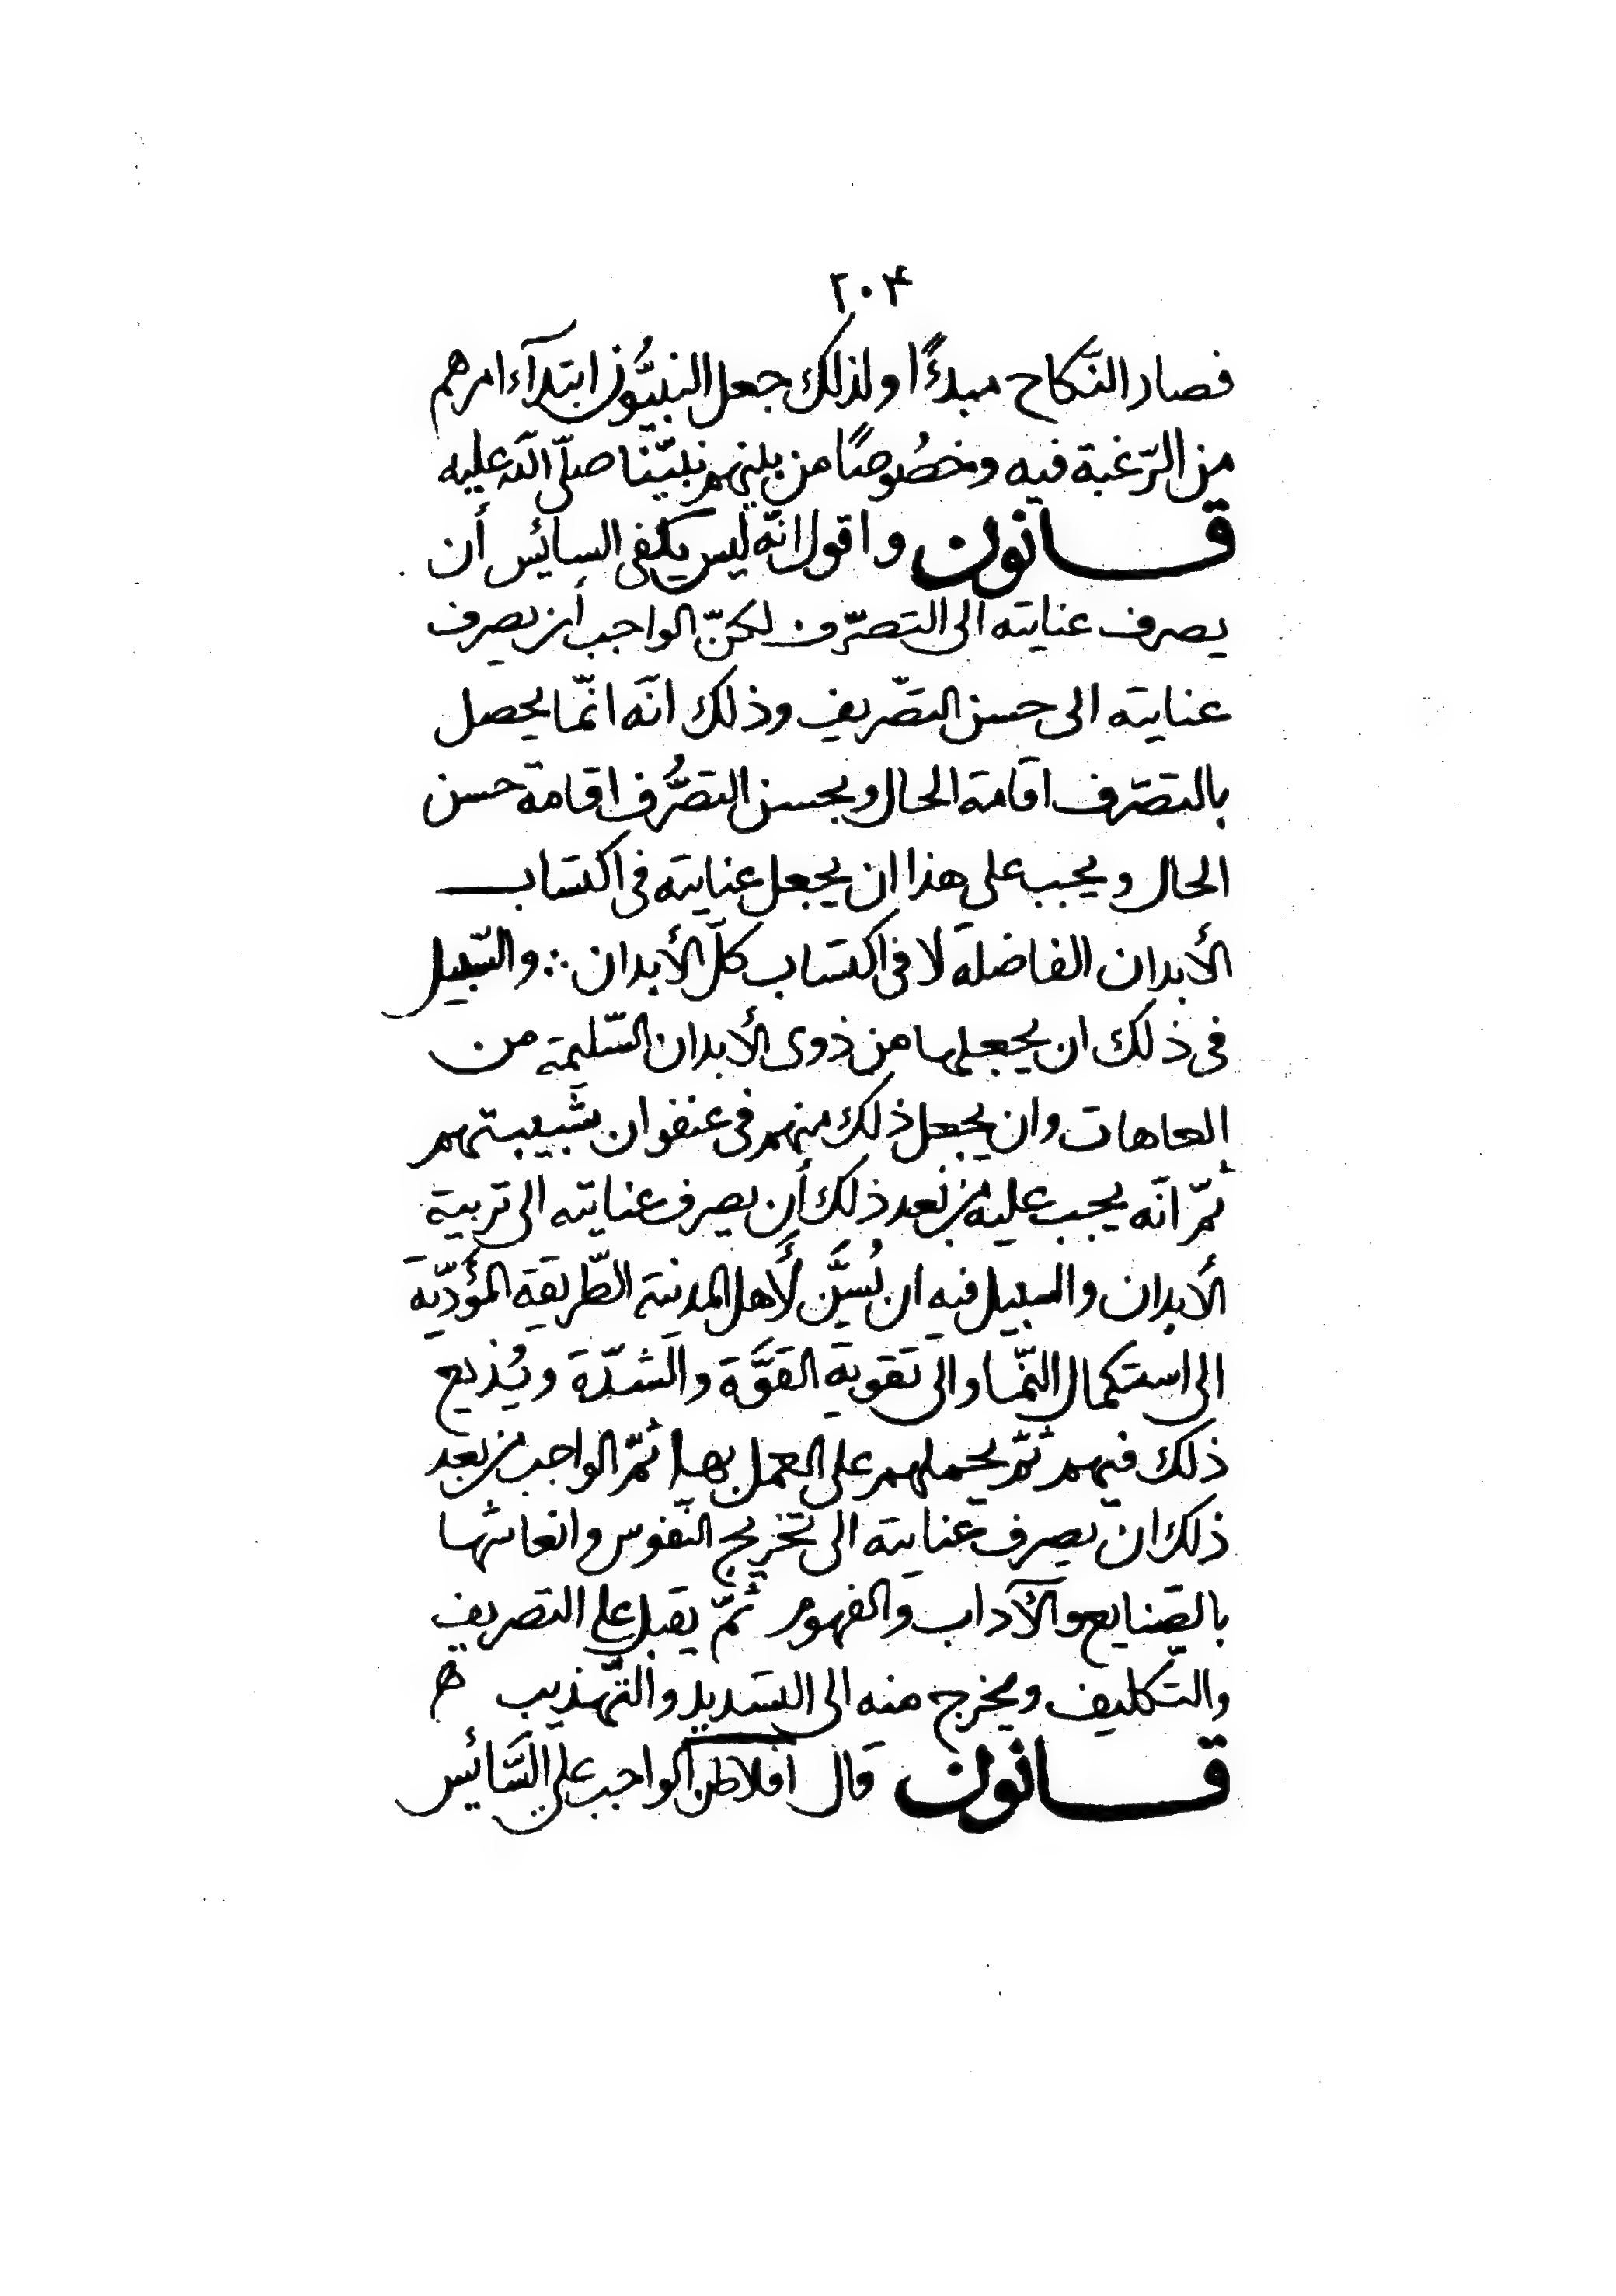 ٢٠۴
فصار النّكاح مبدءًا ولذلك جعل النبيُّون ابتدآء امرهم
من الرّغبة فيه وخصُوصًا من بينهم نبيّنا صلّى الله عليه
قانون واقول انّه ليس يكفى السايس أن
يصرف عنايته الى التصرّف لكنّ الواجب أن يصرف
عنايته الى حسن التصّريف وذلك انّه انّما يحصل
بالتصّرف اقامة الحال وبحسن التصرُّف اقامة حسن
الحال ويجب على هذا ان يجعل عنايته فى اكتساب
الأبدان الفاضلة لا فى اكتساب كلّ الأبدان ∴ والسّبيل
فى ذلك ان يجعلها من ذوى الأبدان السّليمة من
العاهات وان يجعل ذلك منهم فى عنفوان شَبيبتهم
ثمّ انّه يجب عليه من بعد ذلك أن يصرف عنايته الى تربية
الأبدان والسبيل فيه ان يُسَنَّ لأَهل المدينة الطّريقة المؤَدّيةَ
الى استكمال النّما والى تقوية القوَّة والشدّة ويُذيع
ذلك فيهم ثمّ يحملهم على العمل بها ثمّ الواجب من بعد
ذلك ان يصرف عنايته الى تخريج النّفوس وانعاشها
بالصّنايع والآداب والفهوم ثمّ يقبل على التصريف
والتّكليف ويخرج منه الى التسديد والتّهذيب ه
قانون قال أفلاطن الواجب على السَّائس